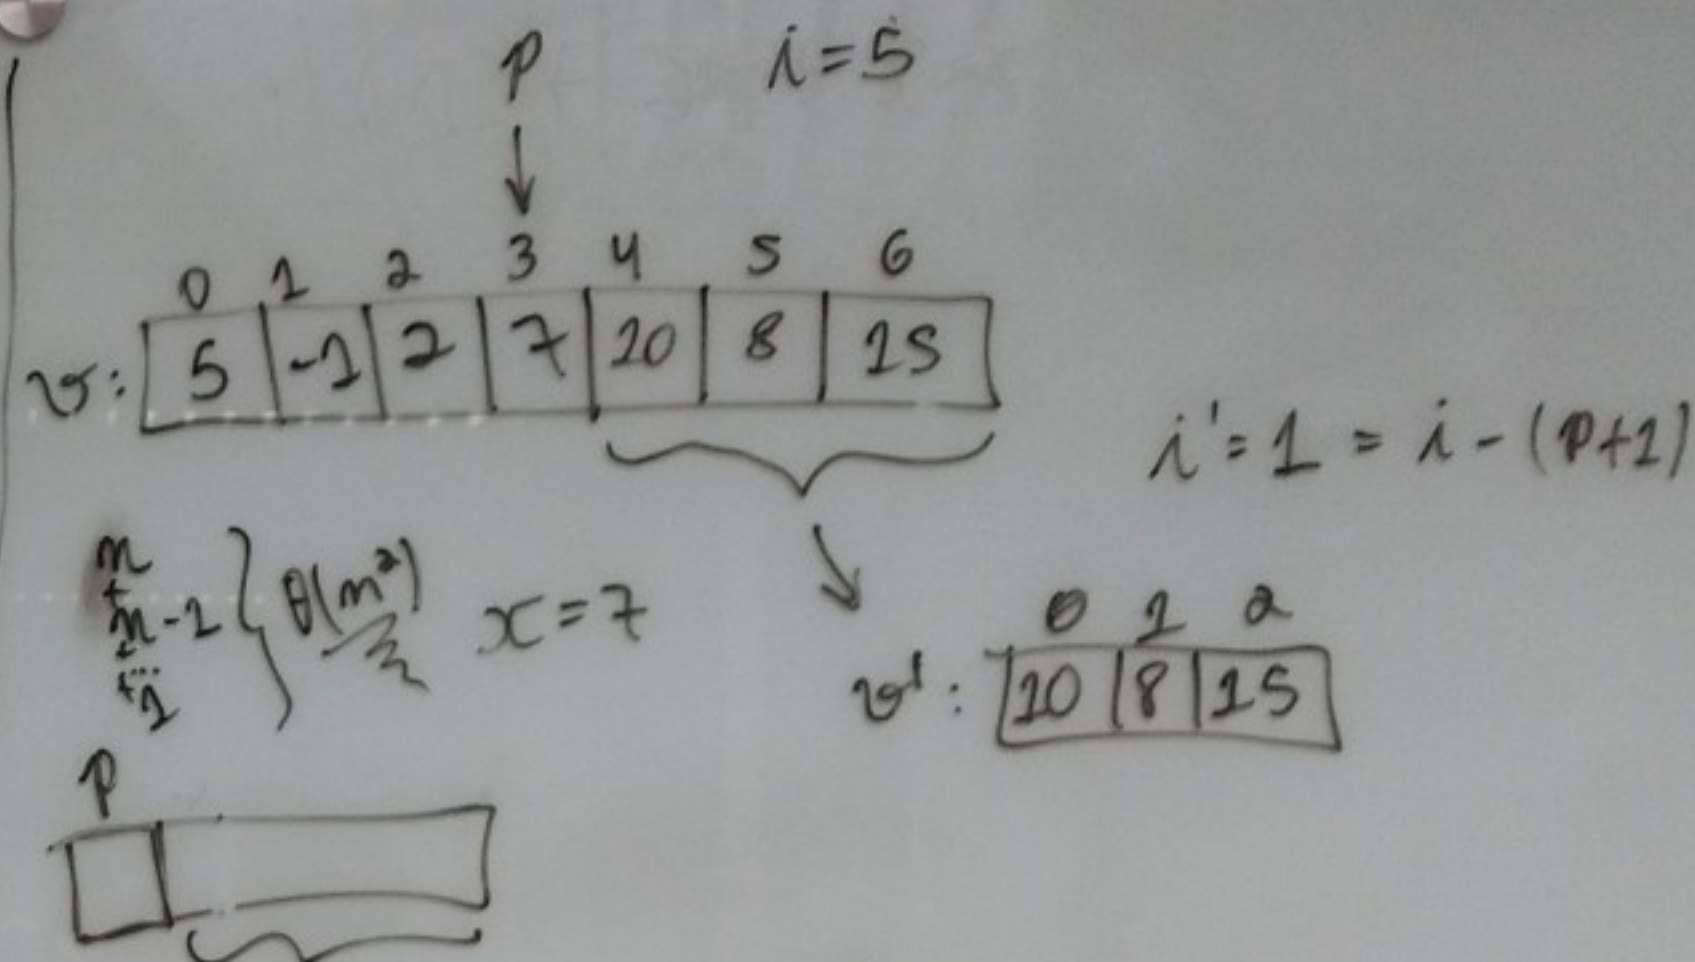 p i=5
0 1 2 3 4 5 6
v: 5 -1 2 7 10 8 15
i'=1=i-(p+1)
n
+
n-1
+
...
+1
θ(n²)
x=7
0 1 2
v': 10 8 15
p